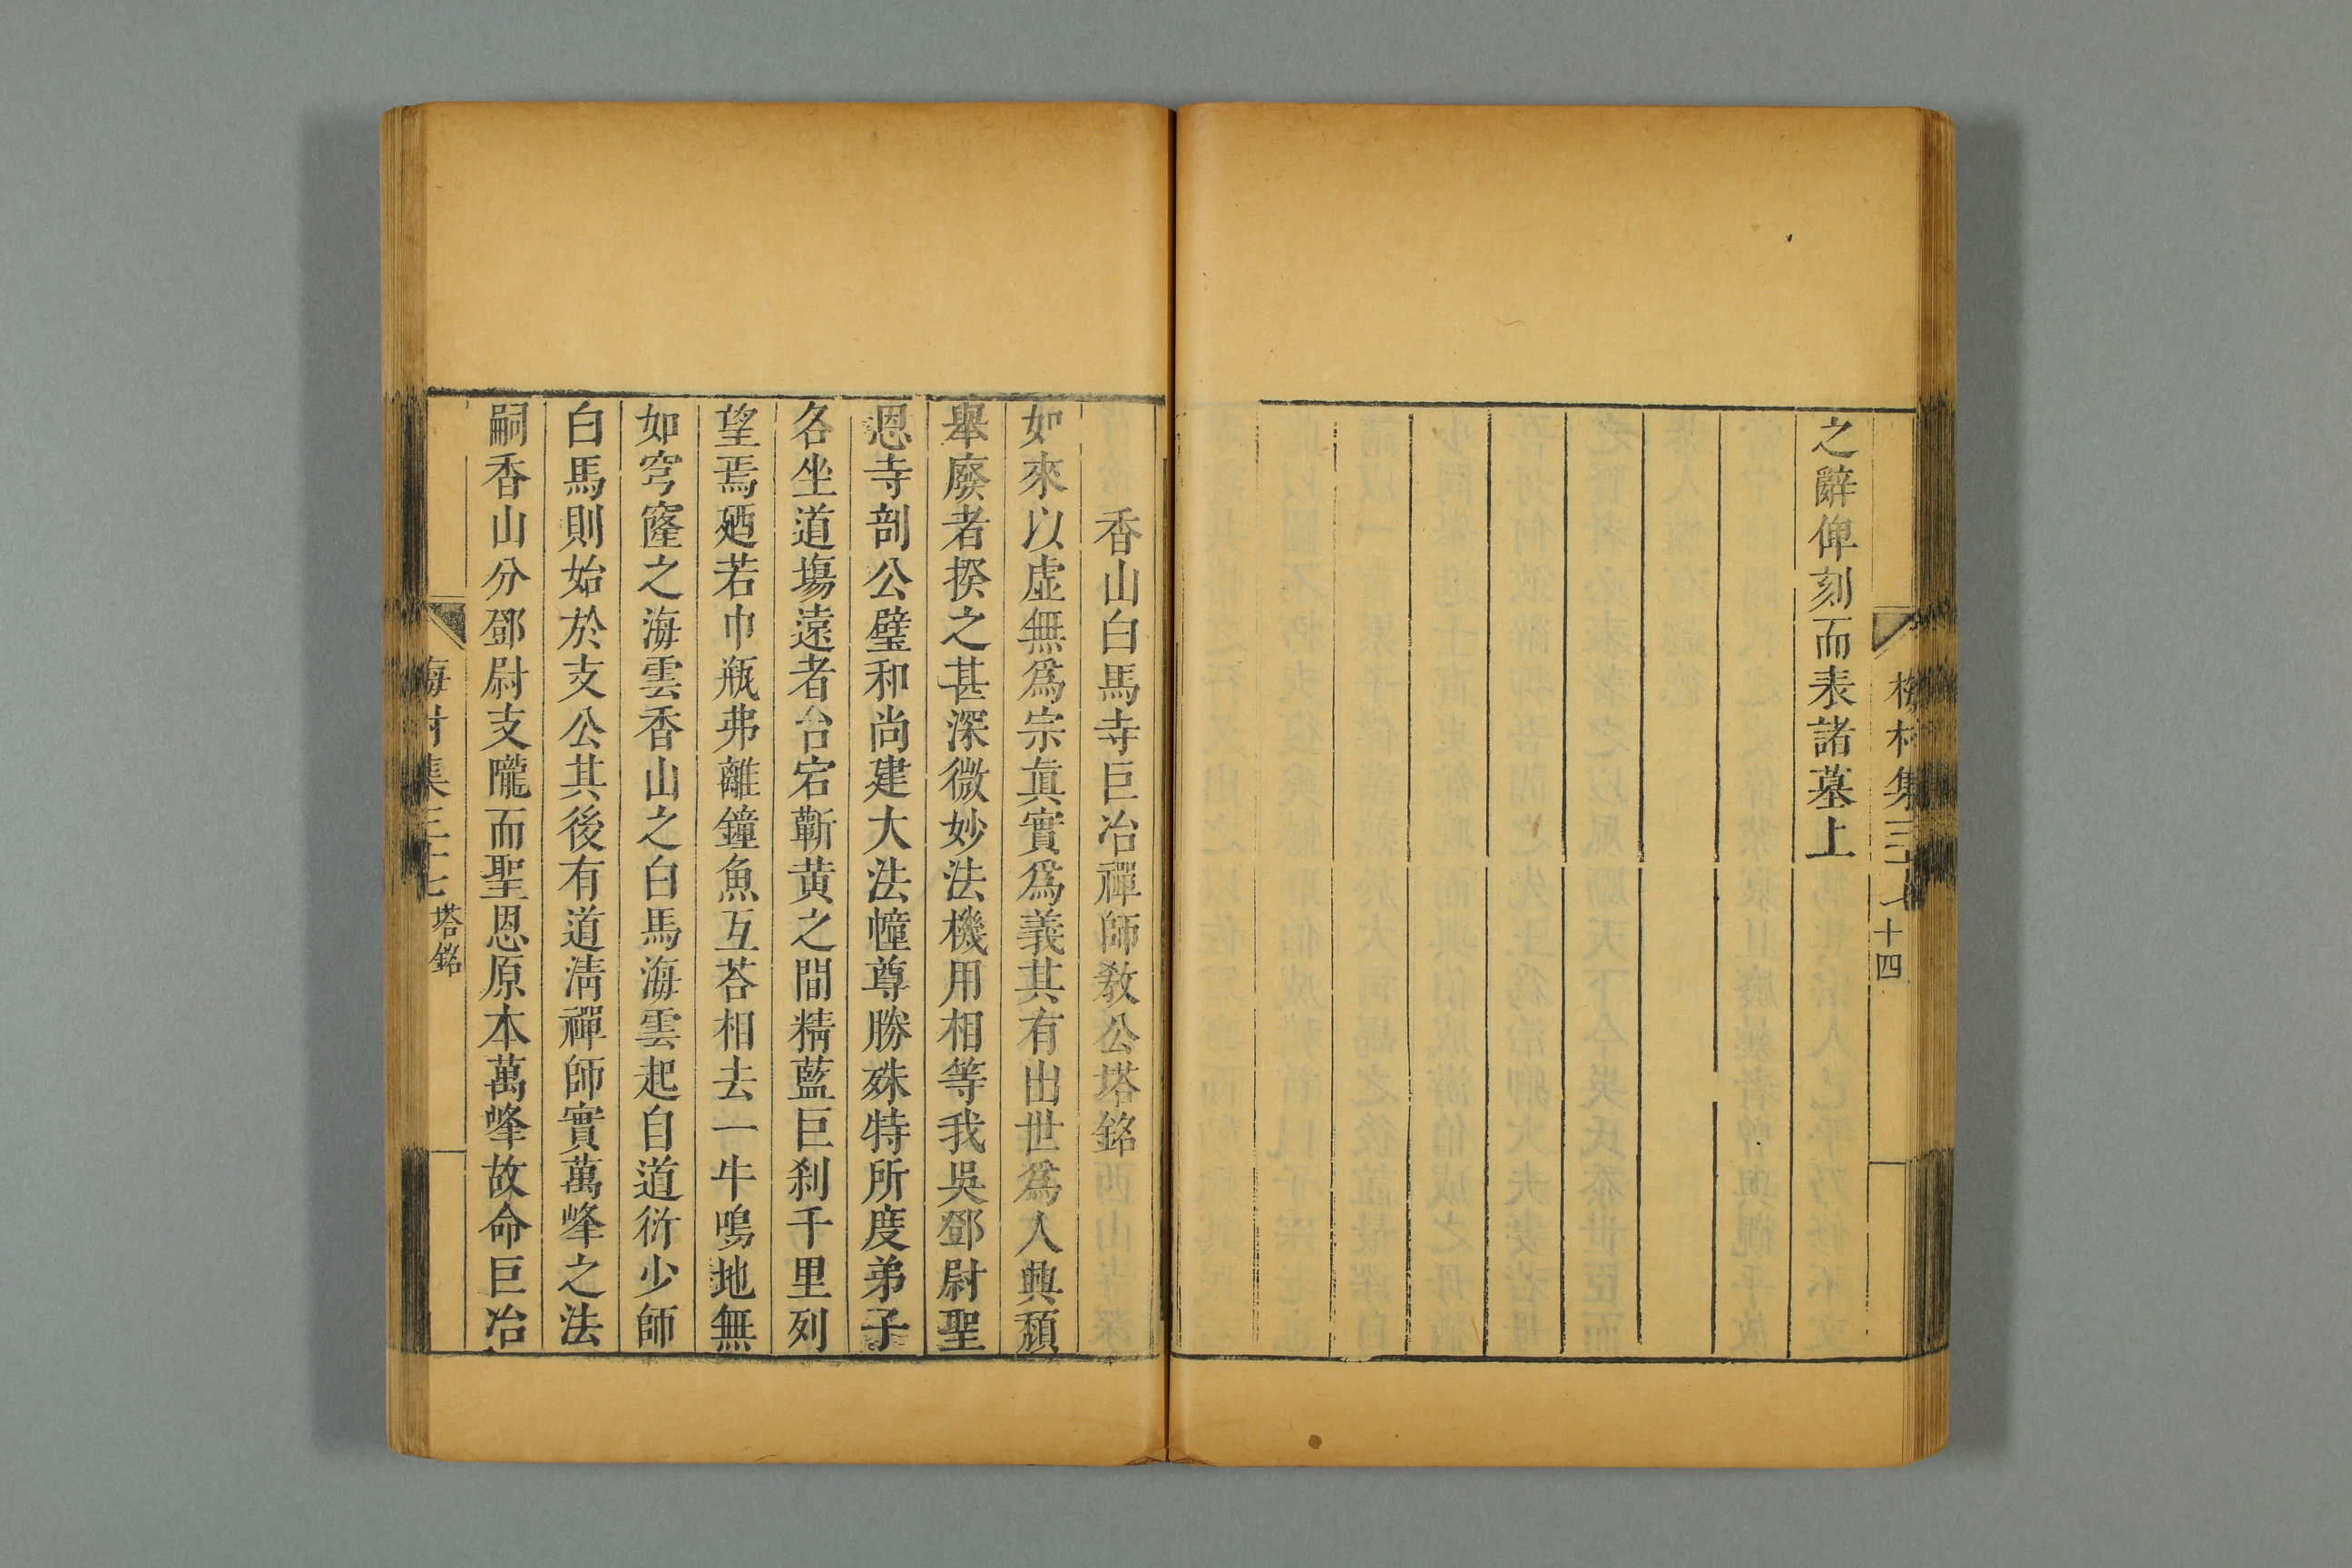 之辭俾刻而表諸墓上
梅村集三十七
十四
香山白馬寺巨冶禪師敎公塔銘
如來以虛無爲宗眞實爲義其有出世爲人興頹
舉廢者揆之甚深微妙法機用相等我吳鄧尉聖
恩寺剖公璧和尚建大法幢尊勝殊特所度弟子
各坐道塲遠者台宕蘄黄之間精藍巨刹千里列
望焉廼若巾瓶弗離鐘魚互荅相去一牛鳴地無
如穹窿之海雲香山之白馬海雲起自道衍少師
白馬則始於支公其後有道淸禪師實萬峰之法
嗣香山分鄧尉支隴而聖恩原本萬峰故命巨冶
梅村集三十七
塔銘